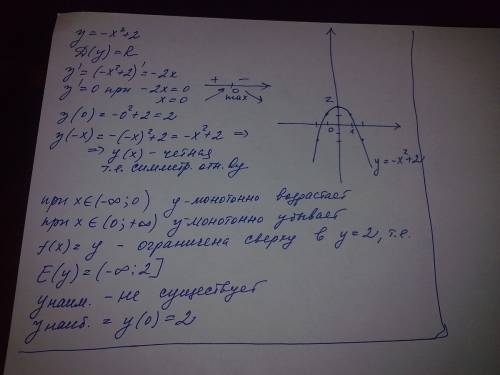 y = -x²+2
D(y) = R
y' = (-x²+2)' = -2x
y' = 0 при -2x = 0
x = 0
+ -
0
max
y(0) = -0²+2 = 2
y(-x) = -(-x)²+2 = -x²+2 ⇒
⇒ y(x) - четная
т.е. симметр. отн. Оy
2
0 1
y = -x²+2
при x∈(-∞; 0) y-монотонно возрастает
при x∈(0; +∞) y-монотонно убывает
f(x) = y - ограничена сверху в y = 2, т.е.
E(y) = (-∞; 2]
y наим. - не существует
y наиб. = y(0) = 2